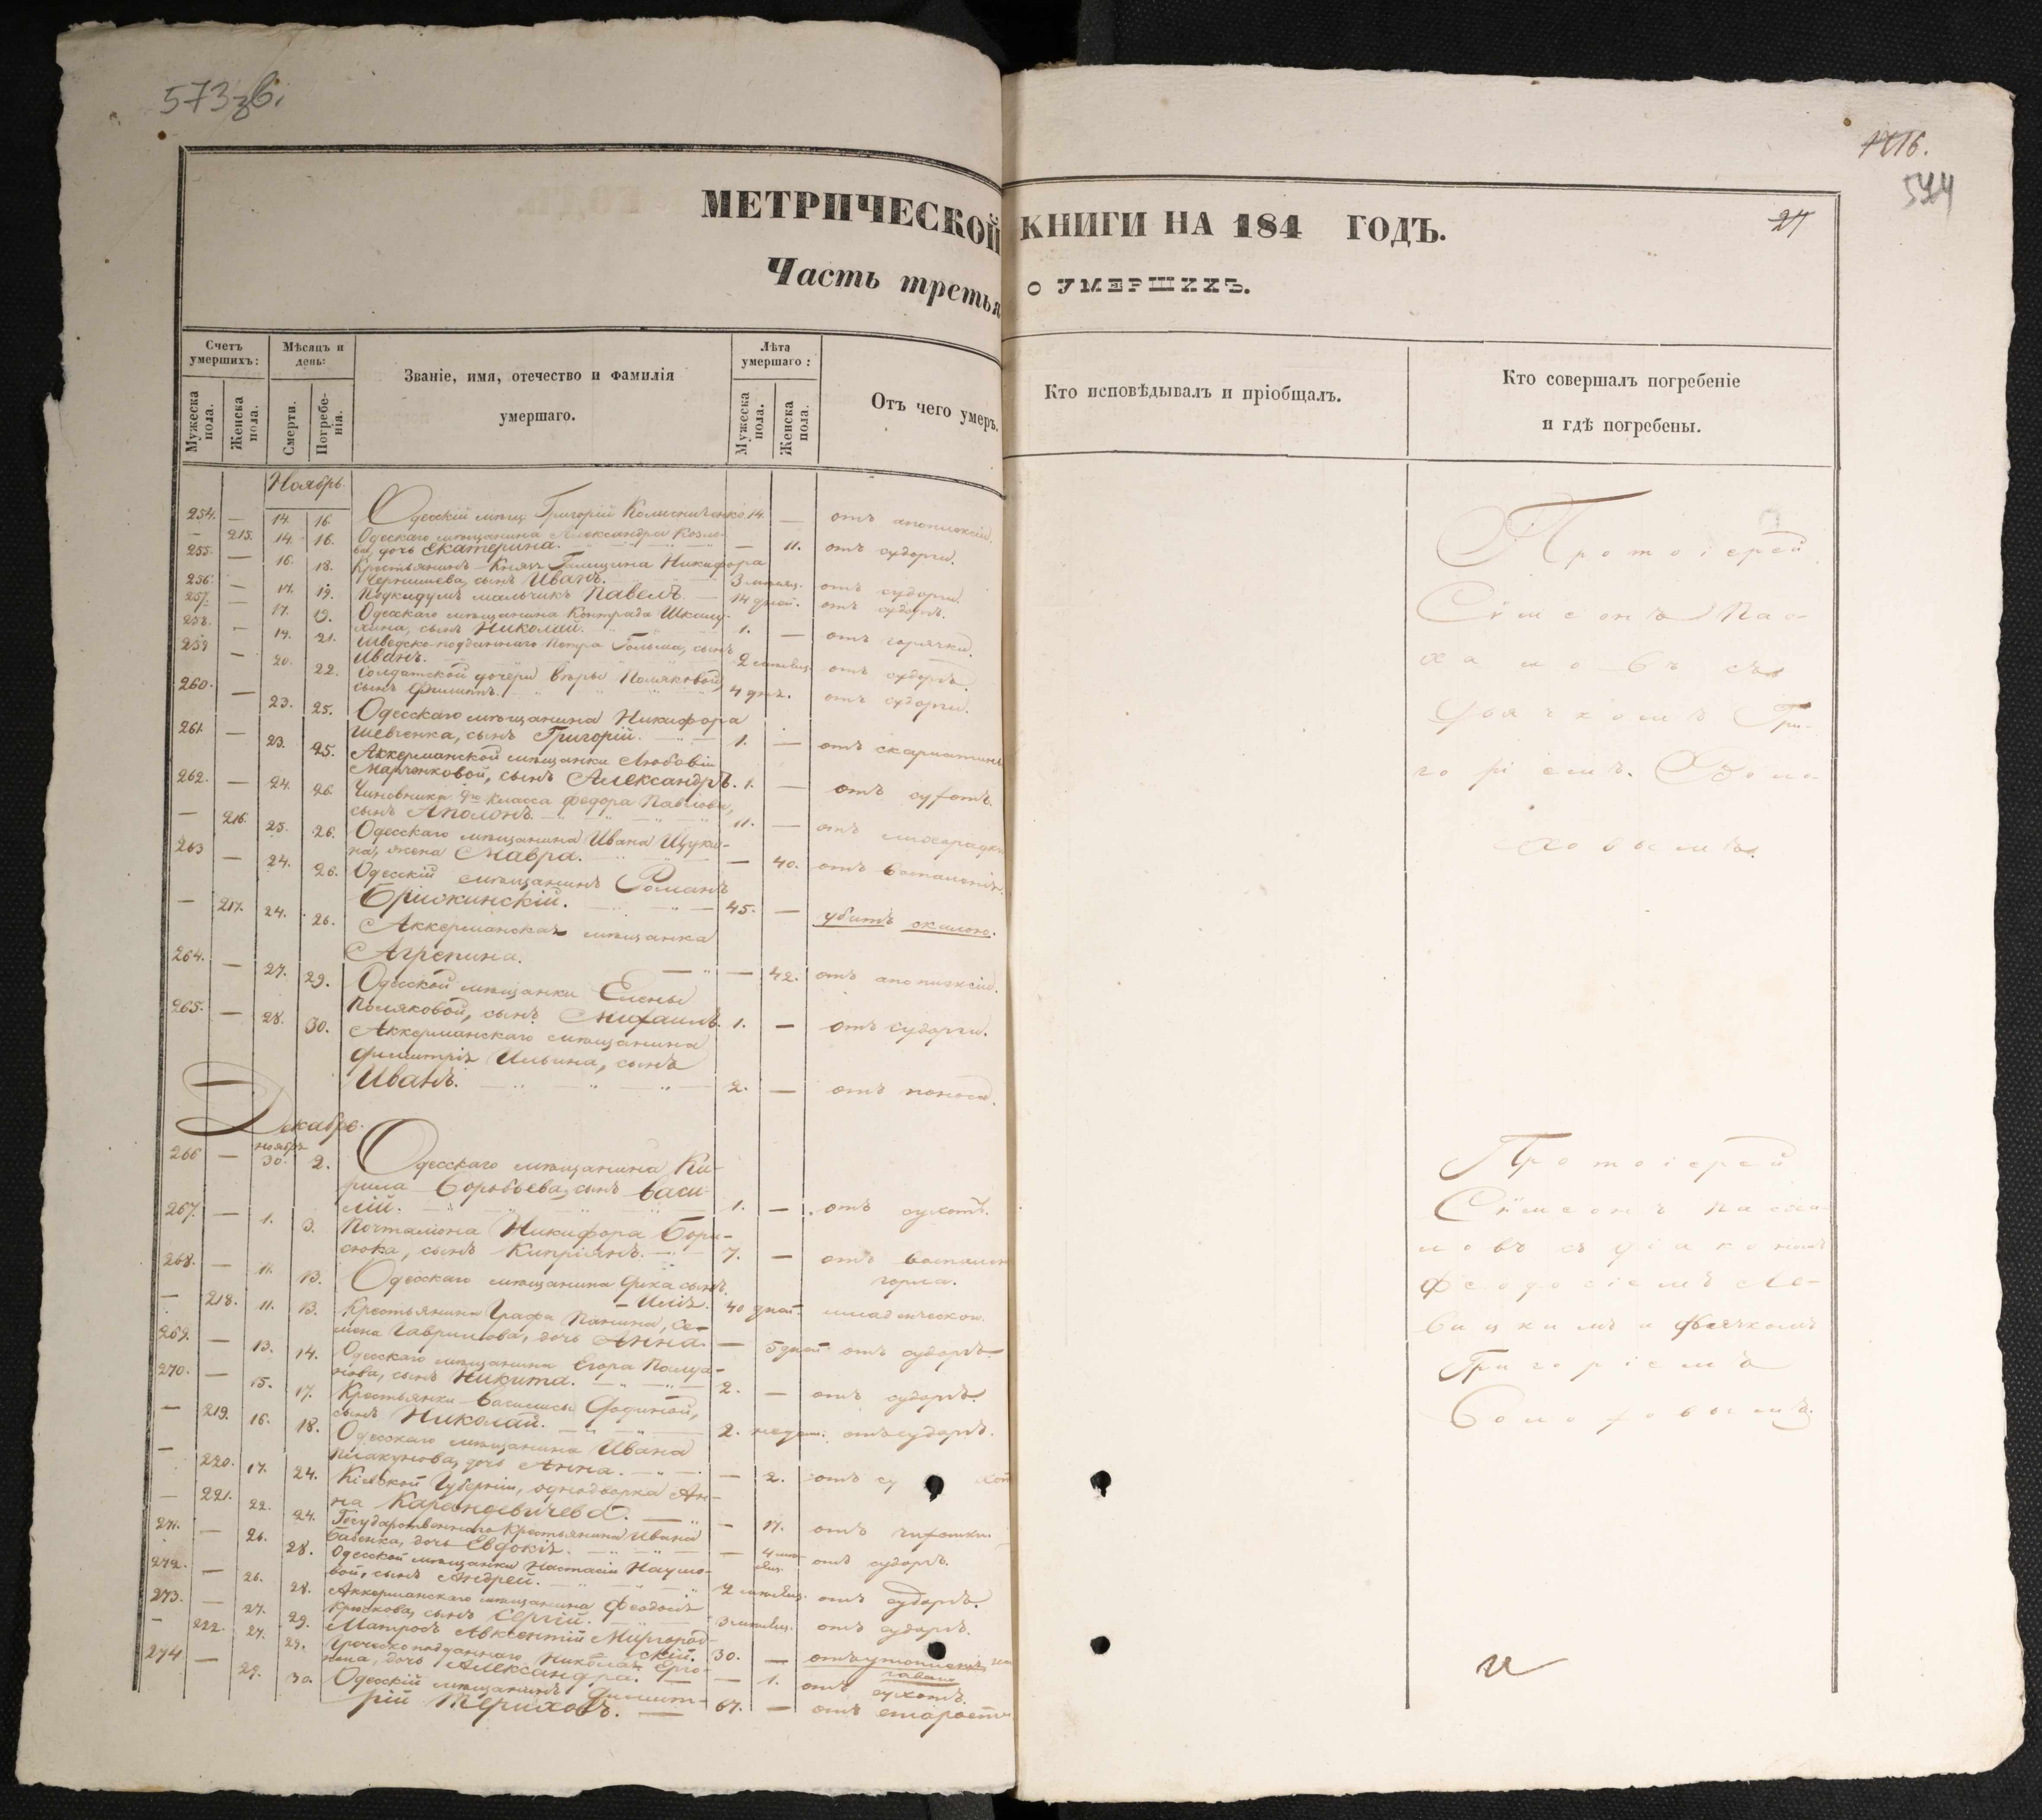 573 зв.
416.
594
27
МЕТРИЧЕСКОЙ КНИГИ НА 184 ГОДЪ.
Часть третья о умершихъ.
Счетъ умершихъ:
Мужеска пола.
Женска пола.
Мѣсяцъ и день:
Смерти.
Погребенія.
Званіе, имя, отечество и фамилія
умершаго.
Лѣта умершаго:
Мужеска пола.
Женска пола.
Отъ чего умеръ.
Кто исповѣдывалъ и пріобщалъ.
Кто совершалъ погребеніе
и гдѣ погребены.
Ноябрь.
254. — 14. 16. Одесскій мѣщ. Григорій Колисниченко 14. — отъ апоплексіи.
— 215. 14. 16. Одесскаго мѣщанина Александра Козло-
ва, дочь Екатерина. — 11. отъ судорги.
255. — 16. 18. Крестьянинъ Князя Голицина Никифора
Чернышева, сынъ Иванъ. 3 мѣсяц. отъ судорги.
256. — 17. 19. Подкидушъ мальчикъ Павелъ. 14 дней. отъ судоргъ.
257. — 17. 19. Одесскаго мѣщанина Контрада
сынъ Николай. 1. — отъ горячки.
258. — 19. 21. Шведско-подданнаго Петра Гольма, сынъ
Иванъ. 2 мѣсяц. отъ судоргъ.
259 — 20. 22. Солдатской дочери Вѣры Поляковой,
сынъ Филиппъ. 4 дн. отъ судорги.
260. — 23. 25. Одесскаго мѣщанина Никифора
Шевченка, сынъ Григорій. 1. — отъ скарлатины
261. — 23. 25. Аккерманской мѣщанки Любовіи
Марченковой, сынъ Александръ. 1. — отъ сухотъ.
262. — 24. 26. Чиновника 9го класса Федора Павлова,
сынъ Аполонъ. 11. — отъ лихорадки
— 216. 25. 26. Одесскаго мѣщанина Ивана Щуки-
на, жена Мавра. — 40. отъ воспаленія.
263 — 24. 26. Одесскій мѣщанинъ Романъ
Брискинскій. 45. — убитъ скалою.
— 217. 24. 26. Аккерманская мѣщанка
Агрепина. — 42. отъ апоплексіи.
264. — 27. 29. Одесской мѣщанки Елены
Поляковой, сынъ Михаилъ. 1. — отъ судорги.
265. — 28. 30. Аккерманскаго мѣщанина
Димитрія Ильина, сынъ
Иванъ. 2. — отъ поноса.
Протоіерей
Сѵмеонъ Пао-
ха мовъ съ
дьячкомъ Гри-
горіемъ. Боло-
ховымъ.
Декабрь.
266 — ноября 30. 2. Одесскаго мѣщанина Ки-
рила Воробьева, сынъ Васи-
лій. 1. — отъ сухотъ.
267. — 1. 3. Почталіона Никифора Бори-
сюка, сынъ Кипріянъ. 7. — отъ воспален
горла.
268. — 11. 13. Одесскаго мѣщанина сынъ
Илія. 40 дней. младенческой.
— 218. 11. 13. Крестьянина Графа Панина, Се-
мена Гаврилова, дочь Анна. — 5 дней отъ судоргъ.
269. — 13. 14. Одесскаго мѣщанина Егора
сынъ Никита. 2. — отъ судоргъ.
270. — 15. 17. Крестьянки Василисы
сынъ Николай. 2. недел. отъ судоргъ.
— 219. 16. 18. Одесскаго мѣщанина Ивана
Плакунова, дочь Анна. — 2. отъ су хот
— 220. 17. 24. Кіевской Губерніи, однодворка Ан-
на Карановичева. — 17. отъ чихотки.
— 221. 22. 24. Государственнаго крестьянина Ивана
Бабенка, дочь Евдокія. — 4 мѣсяц. отъ судоргъ.
271. — 26. 28. Одесской мѣщанки Настасіи Наумо-
вой, сынъ Андрей. 2 мѣсяц. отъ судоргъ.
272. — 26. 28. Аккерманскаго мѣщанина Феодосія
Крюкова, сынъ Сергій. 3 мѣсяц. отъ судоргъ.
273. — 27. 29. Матросъ Авксентій Миргород-
скій. 30. — отъ утопленія
— 222. 27. 29. Греческо подданнаго Николая
дочь Александра. — 1. отъ сухотъ.
274 — 29. 30. Одесскій мѣщанинъ Димит-
рій Териховъ. 67. — отъ старости
Протоіерей
Сѵмеонъ Пао ха-
мовъ съ діакономъ
Феодосіемъ Ле-
вицкимъ и дьячкомъ
Григоріемъ
Болоховымъ.